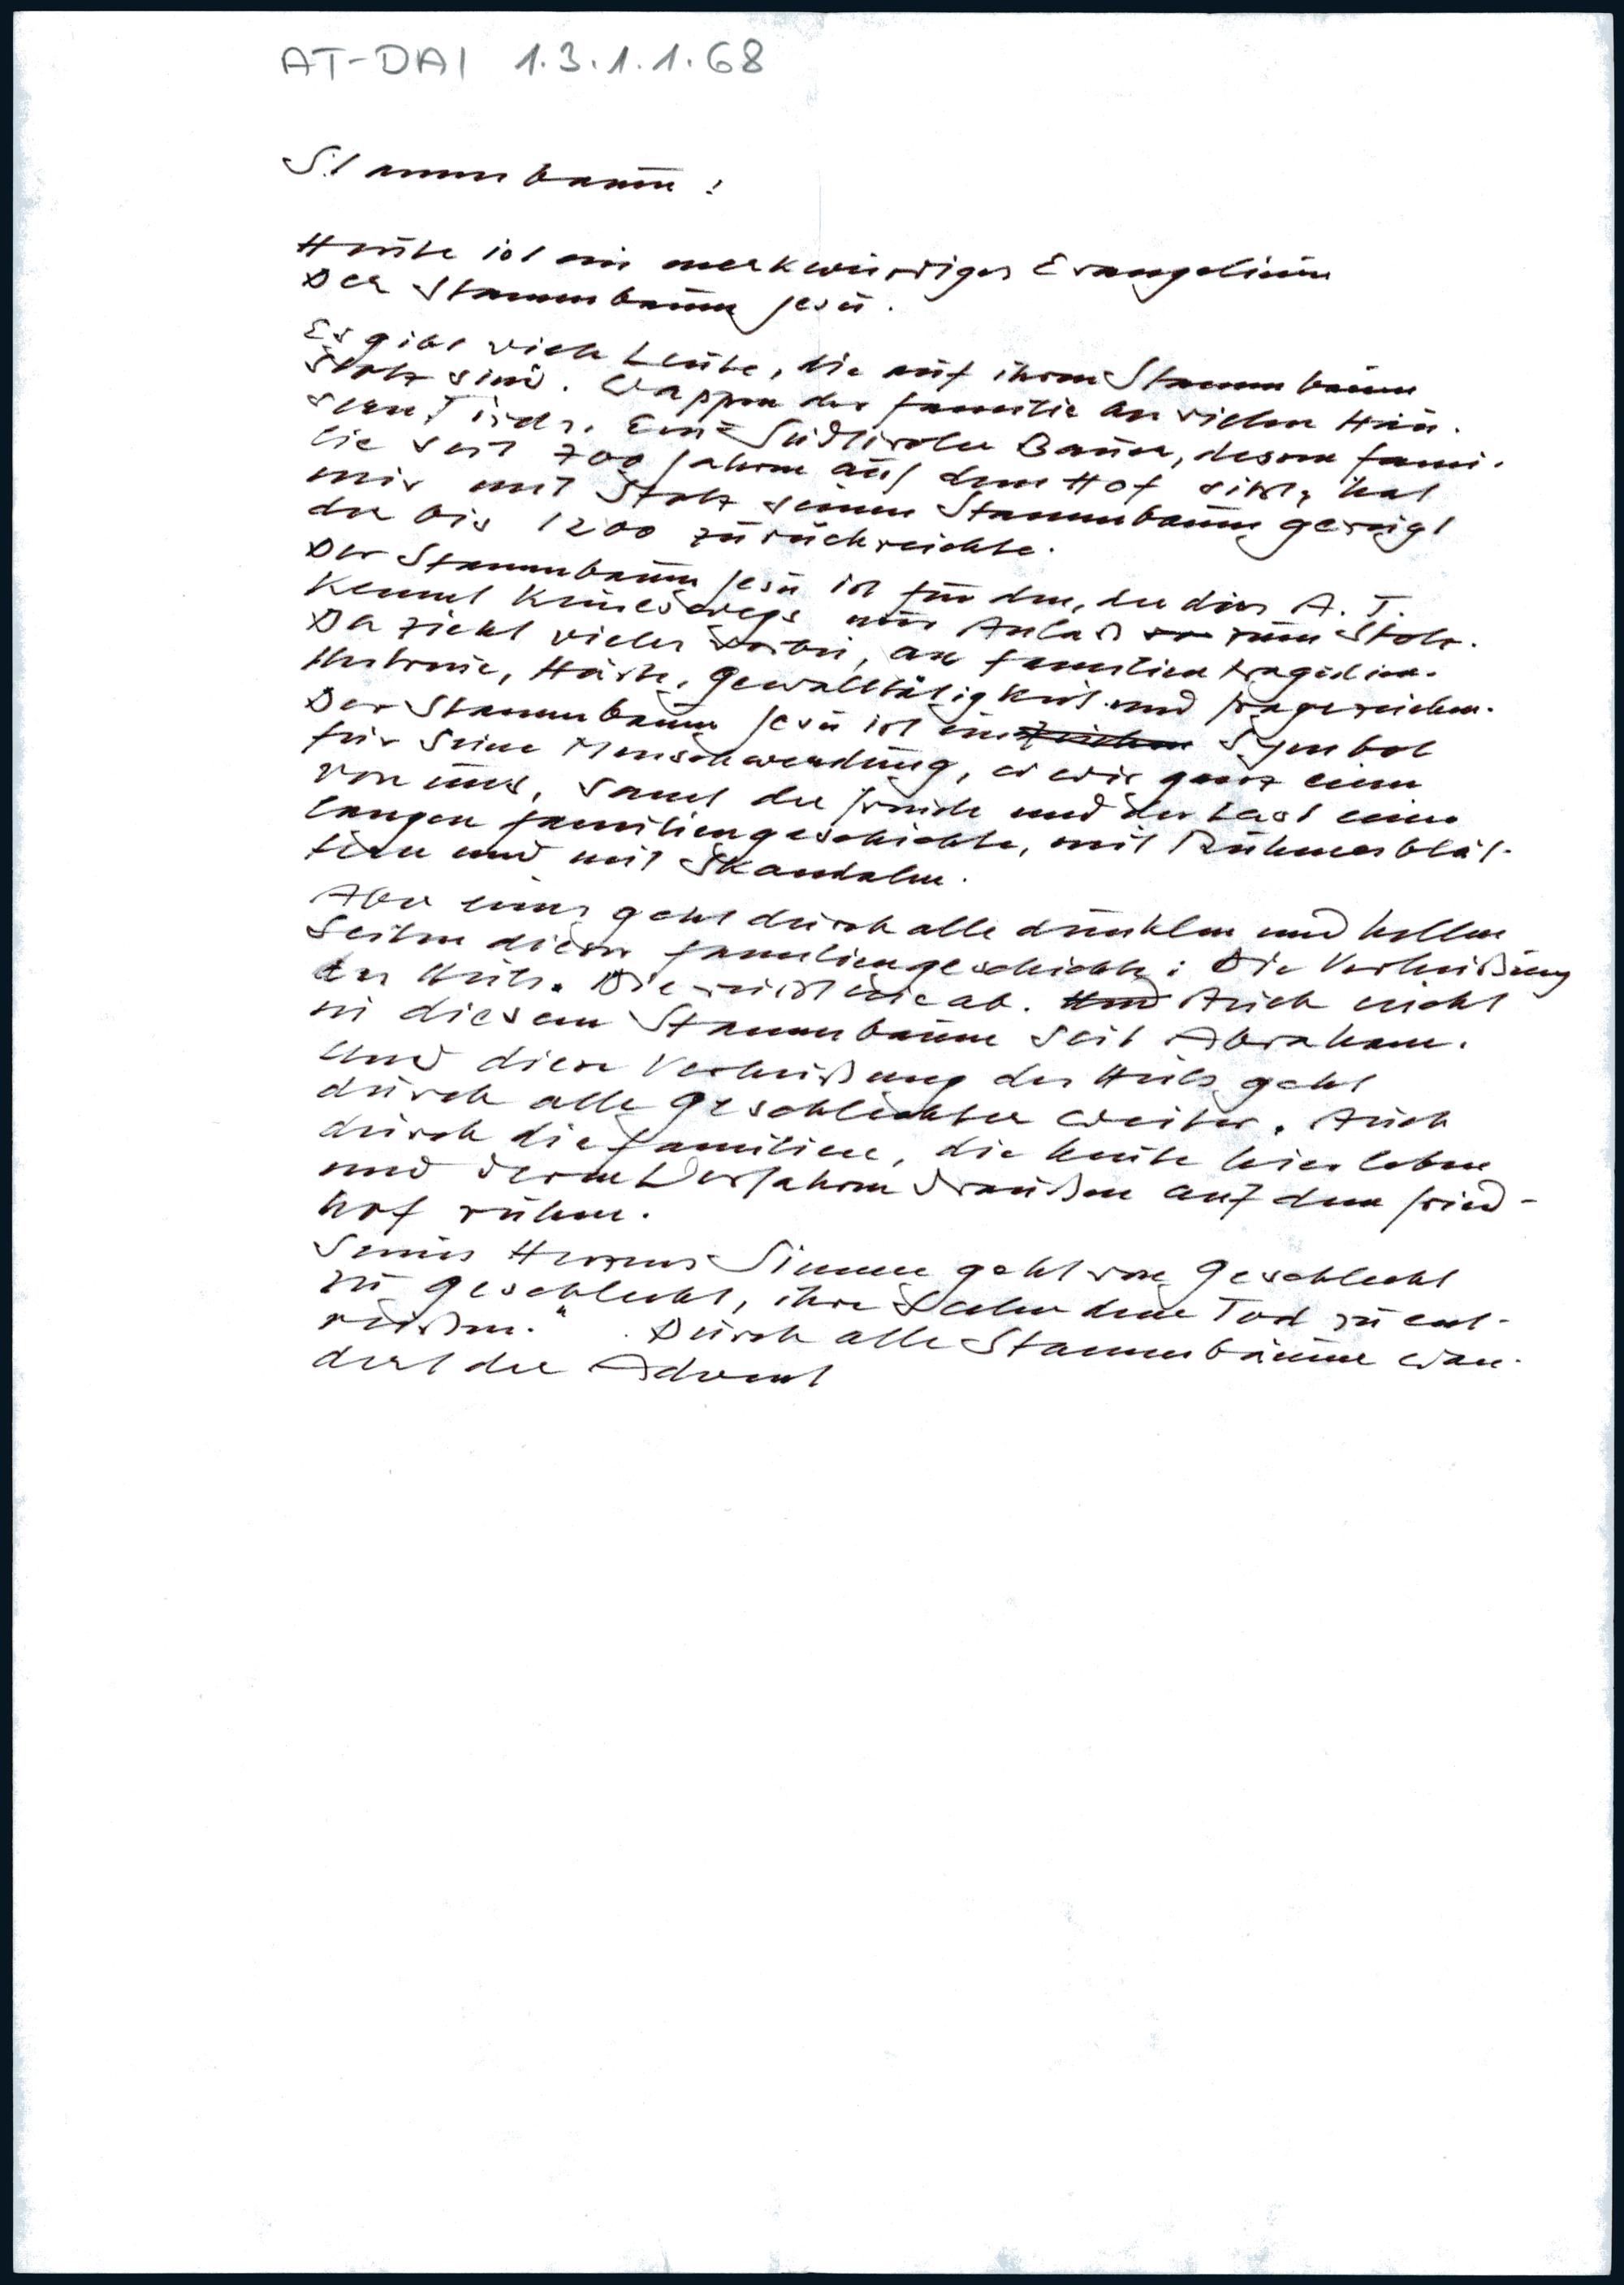 AT-DAI 1.3.1.1.68
Stammbaum:
Heute ist ein merkwürdiges Evangelium
Der Stammbaum Jesu.
Es gibt viele Leute, die auf ihren Stammbaum
Stolz sind. Wappen der Familie an vielen Häu-
sern Ein Südtiroler Bauer, dessen Fami-
lie seit 700 Jahren auf dem Hof sitzt, hat
mir mit Stolz seinen Stammbaum gezeigt
der bis 1200 zurückreichte.
Der Stammbaum Jesu ist für den, der dies A. T.
kennt keineswegs nur Anlaß zum Stolz.
Da zieht vieles vorbei, an Familientragödien.
Untreue, Härte, Gewalttätigkeit und Fragezeichen.
Der Stammbaum Jesu ist ein Zeichen Symbol
für seine Menschwerdung, er wir ganz einer
von uns, samt der Freude und der Last einer
langen Familiengeschichte, mit Ruhmesblät-
tern und mit Skandalen.
Aber eines geht durch alle dunklen und hellen
Seiten dieser Familiengeschichte: Die Verheißung
des Heils. Die reißt nie ab. Und Auch nicht
in diesem Stammbaum seit Abraham.
Und diese Verheißung des Heils geht
durch alle Geschlechter weiter. Auch
durch die Familien, die heute hier leben
und deren Vorfahren draußen auf dem Fried-
hof ruhen.
Seines Herzens Sinnen geht von Geschlecht
zu Geschlecht, ihre Seelen dem Tod zu ent-
reißen." Durch alle Stammbäume wan-
dert der Advent